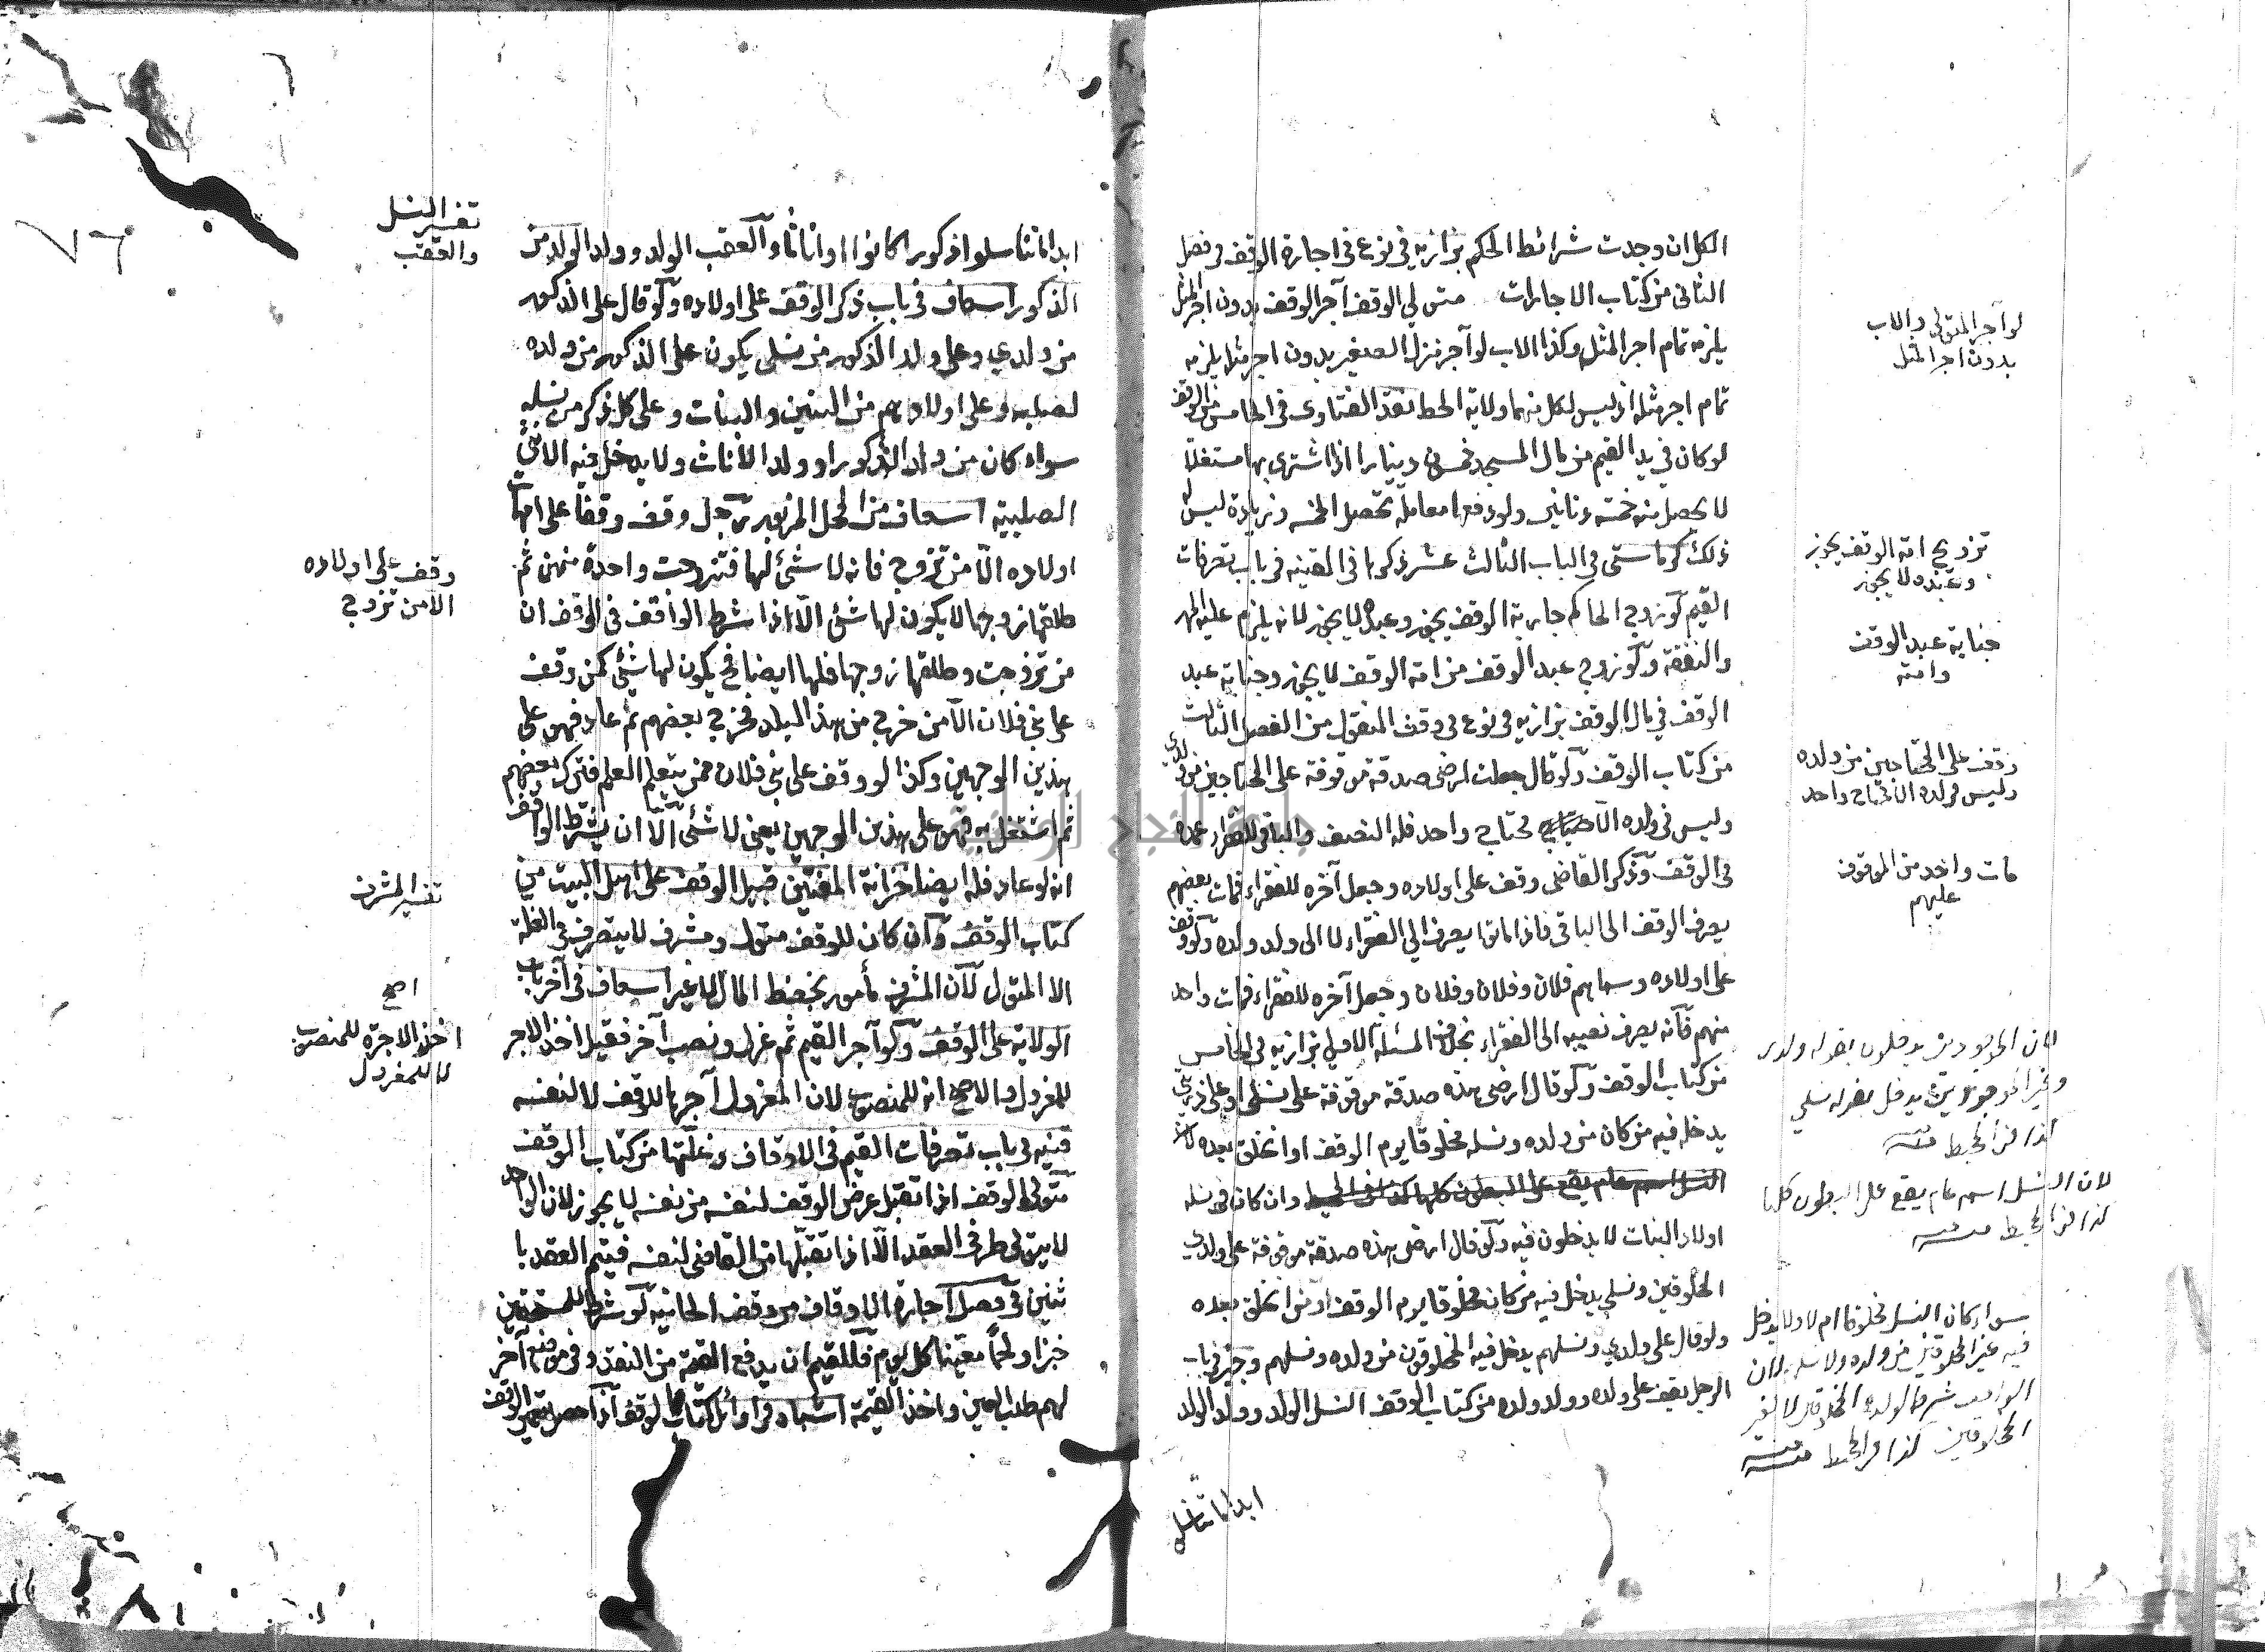 الكل ان وجدت شرائط الحكم بزازيه في نوع في اجارة الوقف في فصل
الثاني من كتاب الاجارات متولي الوقف آجر الوقف بدون اجر المثل
يلزمه تمام اجر المثل وكذا الاب لو آجر منزل الصغير بدون اجر مثله يلزمه
تمام اجر مثله اذ ليس لكل منهما ولاية الحط نقد الفتاوى في الخامس من الوقف
لو كان في يد القيم من مال المسجد خمسون دينارا اذا اشترى بها مستغلا
لا يحصل منه خمسة دنانير ولو دفع معاملة تحصل الخمسة وزيادة ليس له
ذلك كما ستى في الباب الثالث عشر ذكرها في القنيه في باب تصرفات
القيم لو زوج الحاكم جارية الوقف يجوز وعبده لا يجوز لانه يلزم عليه المهر
والنفقة ولو زوج عبد الوقف من امة الوقف لا يجوز وجناية عبد
الوقف في مال الوقف بزازيه في نوع في وقف المنقول من الفصل الثالث
من كتاب الوقف ولو قال جعلت ارضي صدقة موقوفة على المحتاجين من ولدي
وليس في ولده الا محتاج واحد فله النصف والباقي للفقراء عمده
في الوقف وذكر القاضي وقف على اولاده وجعل آخره للفقراء فمات بعضهم
يصرف الوقف الى الباقي فاذا ماتوا يصرف الى الفقراء لا الى ولد ولده ولو وقف
على اولاده وسماهم فلان وفلان وفلان وجعل آخره للفقراء فمات واحد
منهم فانه يصرف نصيبه الى الفقراء بخلاف المسئلة الاولى بزازيه في الخامس
من كتاب الوقف ولو قال ارضي هذه صدقة موقوفة على نسلي او على ذريتي
يدخل فيه من كان من ولده ونسله مخلوقا يوم الوقف او انخلق بعده لان
النسل اسم عام يقع على البطون كلها كذا في المحيط وان كان في نسله
اولاد البنات لا يدخلون فيه ولو قال ارضي هذه صدقة موقوفة على ولدي
المخلوقين ونسلي يدخل فيه من كان مخلوقا يوم الوقف او من انخلق بعده
ولو قال على ولدي ونسلهم يدخل فيه المخلوقون من ولده ونسلهم وجيز في باب
الرجل يقف على ولده وولد ولده من كتاب الوقف النسل الولد وولد الولد
ابدا ما تناسلوا
لو آجر المتولي والاب
بدون اجر المثل
تزويج امة الوقف يجوز
وعبده لا يجوز
جناية عبد الوقف
وامته
وقف على المحتاجين من ولده
وليس في ولده الا محتاج واحد
مات واحد من الموقوف
عليهم
لان الموجودين يدخلون بقوله ولدي
وغير الموجودين يدخل بقوله نسلي
كذا في المحيط منه
لان النسل اسم عام يقع على البطون كلها
كذا في المحيط منه
سواء كان النسل مخلوقا ام لا ولا يدخل
فيه غير المخلوقين من ولده ولا نسله لان
الواقف شرط لولده المخلوقين لا لغير
المخلوقين كذا في المحيط منه
ابدا ما تناسلوا ذكورا كانوا او اناثا والعقب الولد وولد الولد من
الذكور اسعاف في باب ذكر الوقف على اولاده ولو قال على الذكور
من ولدي وعلى ولد الذكور من نسلي يكون على الذكور من ولده
لصلبه وعلى اولادهم من البنين والبنات وعلى كل ذكر من نسله
سواء كان من ولد الذكور او ولد الاناث ولا يدخل فيه الانثى
الصلبيه اسعاف من المحل المزبور رجل وقف وقفا على امهات
اولاده الا من تزوج فانه لا شئ لها فتزوجت واحدة منهن ثم
طلقها زوجها لا يكون لها شئ الا اذا شرط الواقف في الوقف ان
من تزوجت وطلقها زوجها فلها ايضا فح يكون لها شئ كمن وقف
على بني فلان الا من خرج من هذا البلد فخرج بعضهم ثم عاد فهو على
هذين الوجهين وكذا لو وقف على بني فلان ممن يتعلم العلم فترك بعضهم
ثم اشتغل به فهو على هذين الوجهين يعني لا شئ الا ان يشترط الواقف
انه لو عاد فله ايضا خزانة المفتين قبيل الوقف على اهل البيت من
كتاب الوقف وان كان للوقف متول ومشرف لا يتصرف في الغلة
الا المتولي لان المشرف مأمور بحفظ المال لا غير اسعاف في آخر باب
الولاية على الوقف ولو آجر القيم ثم عزل ونصب آخر فقيل اخذ الاجر
للمعزول والاصح انه للمنصوب لان المعزول آجرها للوقف لا لنفسه
قنيه في باب تصرفات القيم في الاوقاف وغلتها من كتاب الوقف
متولي الوقف اذا تقبل عرض الوقف لنفسه من نفسه لا يجوز لان الواحد
لا يتولى طرفي العقد الا اذا تقبلها من القاضي لنفسه فيتم العقد با
ثنين في فصل اجارة الاوقاف من وقف الخانيه لو شرط للمستحقين
خبزا ولحما معينا كل يوم فللقيم ان يدفع القيمة من النقد وفي موضع آخر
لهم طلب العين واخذ القيمة اشباه في اوائل كتاب الوقف اذا حصر تعمير الوقف
تفسير النسل
والعقب
وقف على اولاده
الا من تزوج
تفسير المشرف
اصح
اخذ الاجرة للمنصوب
لا للمعزول
٧٦
جامعة النجاح الوطنية